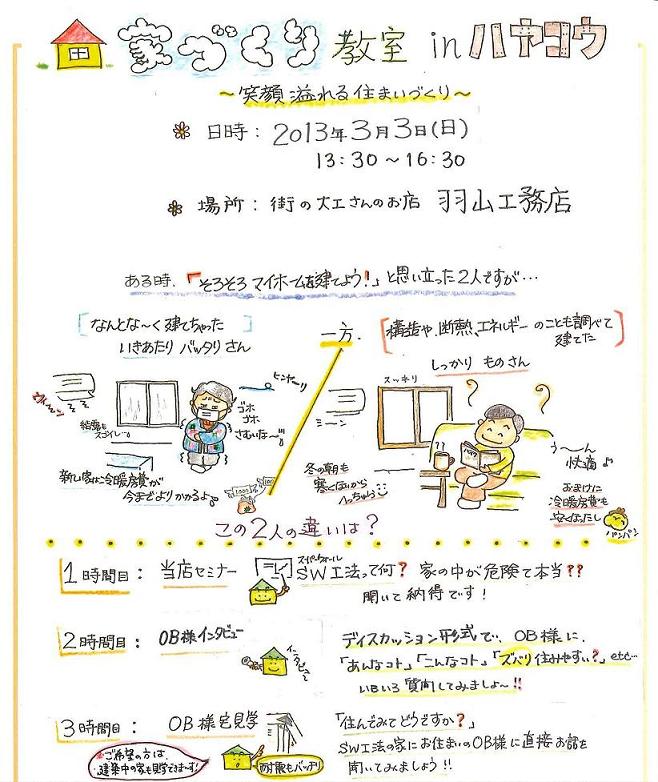 家づくり 教室 in ハヤコウ
～笑顔溢れる住まいづくり～
日時：2013年3月3日(日)
13:30～16:30
場所：街の大工さんのお店 羽山工務店
ある時、「そろそろマイホームを建てよう!」と思い立った2人ですが…
なんとな～く建てちゃった
いきあたりバッタリさん
一方、
構造や、断熱、エネルギーのことも調べて
建てた
しっかりものさん
スッキリ
ゴホ
ゴホ
さむいな～
結露も
スゴイし
新しい家は冷暖房費が
今までよりかかるよ
冬の朝も
寒くないから
へっちゃら
う～ん
快適♪
おまけに
冷暖房費も
安くなったし
パンパン
この2人の違いは？
1時間目：当店セミナー
スーパーウォール
SW工法って何？家の中が危険て本当??
聞いて納得です！
2時間目：OB様インタビュー
ディスカッション形式で、OB様に
「あんなコト」「こんなコト」「ズバリ住みやすい？」etc…
いろいろ質問してみましょ～!!
3時間目：OB様宅見学
「住んでみてどうですか？」
SW工法の家にお住まいのOB様に直接お話を
聞いてみましょう!!
ご希望の方は、
建築中の家も見学できま～す!
耐震もバッチリ